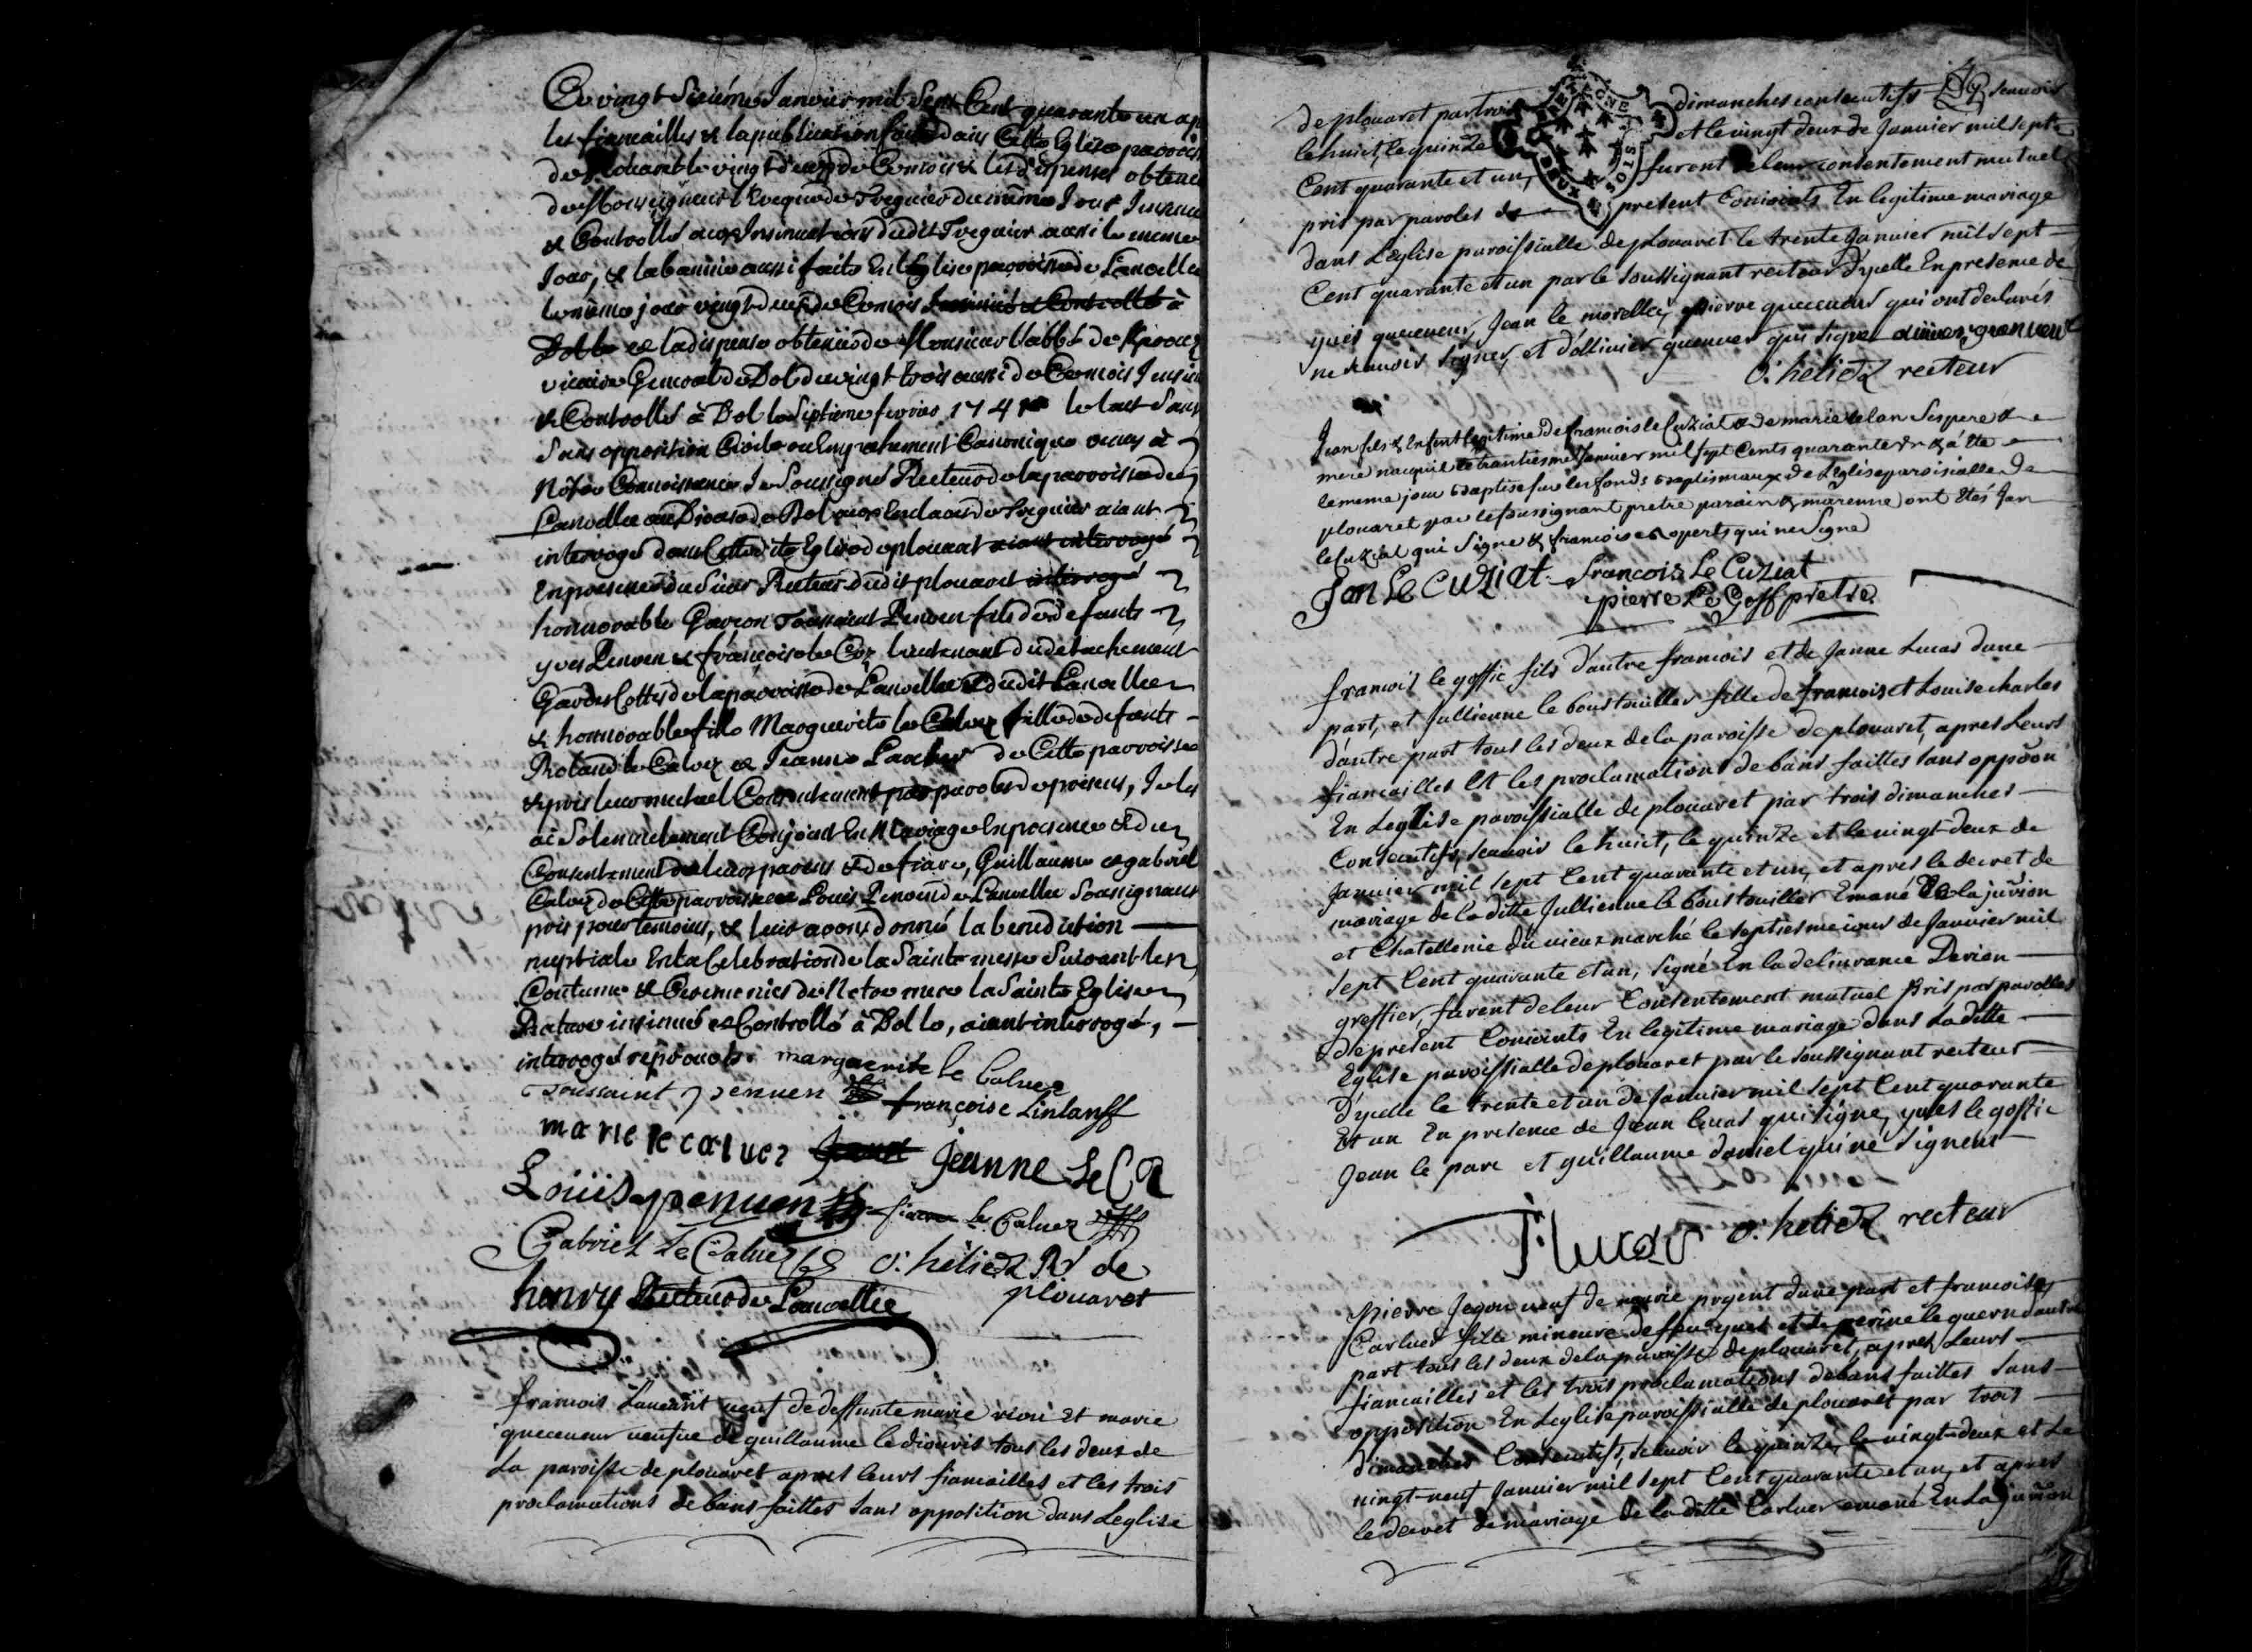 Ce vingt Sixiéme Janvier mil Sept Cent quarante un ap
les fiançailles & la publication faite dans Cette Eglise parois
de plouaret le vingt deux de Ce mois & les dispenses obtenu
de Monseigneur l'Eveque de Treguier du même Jour Insinué
& Controllé aux Insinuations dudit Treguier aussi le meme
Jour, & la bannie aussi faite En l'Eglise paroisse de Lanvellec
le même jour vingt deux de Ce mois Insinué & Controllé à
Dol le & la dispense obtenüe de Monsieur l'abbé de
vicaire General de Dol du vingt trois aussi de Ce mois Insin
& Controllé à Dol le Septieme fevrier 1741 le tout Sans
Sans opposition Civile ou Empechement Canonique venus à
Nôtre Connoissance Je Soussigné Recteur de la parroisse de
Lanvellec au Diocese de Dol aux Enclaves de Treguier aiant
interrogé dans Cette dite Eglise de plouaret aiant interrogé
En presence du Sieur Recteur dudit plouaret interrogé
honnorable Garçon Toussaint Penven fils de defunts
yves Penven & françoise le Coz lieutenant du detachement
Gardes Cottes de la parroisse de Lanvellec & dudit Lanvellec
& honnorable fille Marguerite le Calvez fille de defunts
Roland le Calvez & Jeanne de Cette parroisse
& pris leur mutuel Consentement par paroles de presens, Je les
ai Solennelement Conjoint En Mariage En presence & du
Consentement de leurs parens & de fiacre, Guillaume & gabriel
Calvez de Cette parroisse & Louis Penven de Lanvellec Soussignans
pris pour temoins, & leur avons donné la benediction
nuptiale En la Celebration de la Sainte messe Suivant les
Coutumes & Ceremonies de Notre mere la Sainte Eglise
Rature insinué & Controllé à Dol le, aiant interrogé,
interrogé reprouvés marguerite le Caluez
toussaint penuen françoise Linlanff
marie le caluez Jeanne Le Coz
Loüis penuen fiacre le Caluez
Gabriel Le Caluez o: heliez Rr de
henry Recteur de Lanvellec plouaret
francois Laueant ueuf de deffunte marie riou et marie
queceneur ueufue de guillaume le diouris tous les deux de
la paroisse de plouaret apres leurs fiancailles et les trois
proclamations de bans faittes sans opposition dans Leglise
de plouaret par trois dimanches consecutifs scauoir
le huit, le quinze et le uingt deux de Januier mil sept
Cent quarante et un, furent de leur consentement mutuel
pris par paroles de present Conioints En legitime mariage
dans Leglise paroissialle de plouaret le trente Januier mil sept
Cent quarante et un par le soussignant recteur d'ycelle En presence de
yues queceneur, Jean le morellec, pierre queceneur qui ont declarés
ne scauoir signer, et d'olliuier quenuen qui signe oliuier quenuen
o: heliez recteur
Jean fils & Enfent legitime de francois le Cuziat & de marie Ses pere &
mere nacquit le trantiesme Januier mil sept Cents quarante Vn & a Ete
le meme jour Baptisé sur les fonds Baptismaux de Leglise paroissialle de
plouaret par le soussignant pretre parain & marenne ont Etés Jan
le Cuziat qui Signe & francoise qui ne Signe
Jan Le Cuziat francois Le Cuziat
pierre Le Goff pretre
francois le goffic fils d'autre francois et de Janne Lucas dune
part, et Jullienne le boustouiller fille de francois et Louise charles
d'autre part tous les deux de la paroisse de plouaret, apres Leurs
fiancailles et les proclamations de bans faittes sans oppoon
En Leglise paroissialle de plouaret par trois dimanches
Consecutifs, scauoir le huit, le quinze et le uingt deux de
Januier mil sept Cent quarante et un, et apres le decret de
mariage de la ditte Jullienne le boustouiller Emané De la jurion
et Chatellenie du uieux marché le septiesme iour de Januier mil
sept Cent quarante et un, signé En la deliurance Derien
greffier, furent de leur Consentement mutuel pris par parolles
de present Conioints En legitime mariage dans La ditte
Eglise paroissialle de plouaret par le soussignant recteur
d'ycelle le trente et un de Januier mil sept Cent quarante
Et un En presence de Jean lucas qui signe, yues le goffic
Jean le parc et guillaume daniel qui ne signent
J: lucas o: heliez recteur
pierre Jegou ueuf de marie prgent dune part et francoise
Carluer fille mineure de feu yues et de perine le guern dautre
part tous les deux de la paroisse de plouaret, apres Leurs
fiancailles et les trois proclamations de bans faittes sans
opposition En Leglise paroissialle de plouaret par trois
dimanches Consecutifs, scauoir le quinze, le uingt-deux et le
uingt-neuf Januier mil sept Cent quarante et un, et apres
le decret de mariage de la ditte Carluer emané En La jurion